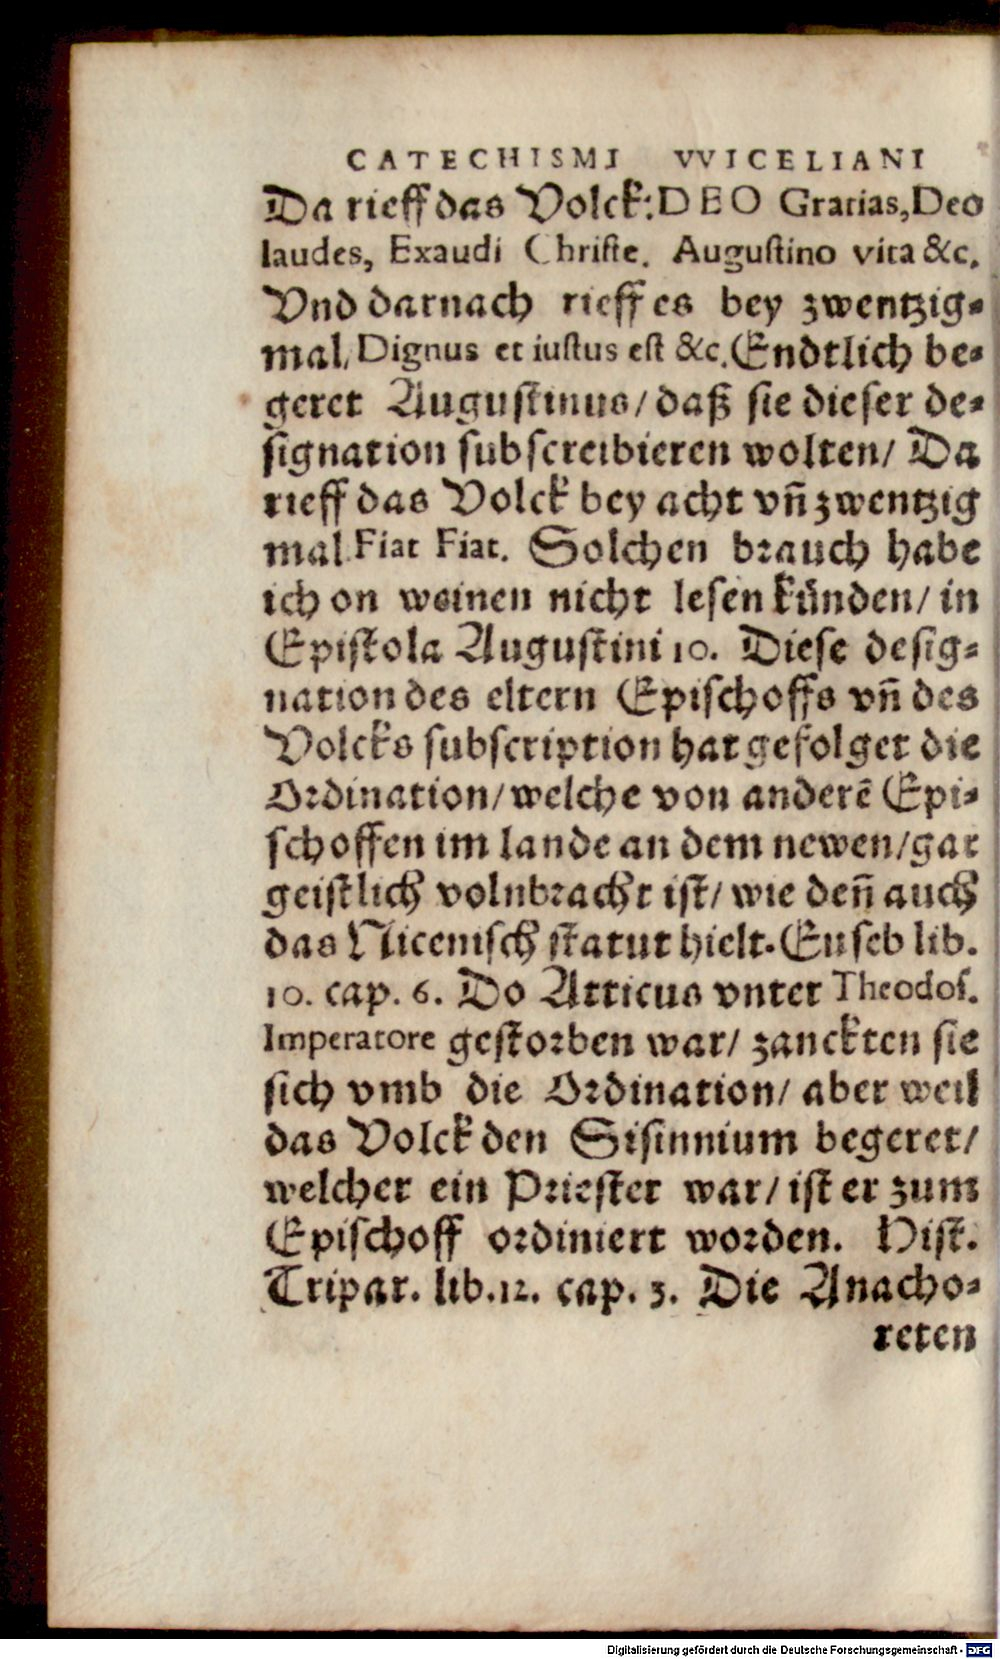 CATECHISMI VVICELIANI
Da rieff das Volck: DEO Gratias, Deo
laudes, Exaudi Christe. Augustino vita &c.
Vnd darnach rieff es bey zwentzig-
mal, Dignus et iustus est &c. Endtlich be-
geret Augustinus/ daß sie dieser de-
signation subscreibieren wolten/ Da
rieff das Volck bey acht vñ zwentzig
mal Fiat Fiat. Solchen brauch habe
ich on weinen nicht lesen künden/ in
Epistola Augustini 10. Diese desig-
nation des eltern Epischoffs vñ des
Volcks subscription hat gefolget die
Ordination/ welche von anderẽ Epi-
schoffen im lande an dem newen/ gar
geistlich volnbracht ist/ wie deñ auch
das Nicenisch statut hielt. Euseb lib.
10. cap. 6. Do Atticus vnter Theodos.
Imperatore gestorben war/ zanckten sie
sich vmb die Ordination/ aber weil
das Volck den Sisinnium begeret/
welcher ein Priester war/ ist er zum
Epischoff ordiniert worden. Hist.
Tripar. lib. 12. cap. 3. Die Anacho-
reten
Digitalisierung gefördert durch die Deutsche Forschungsgemeinschaft - DFG